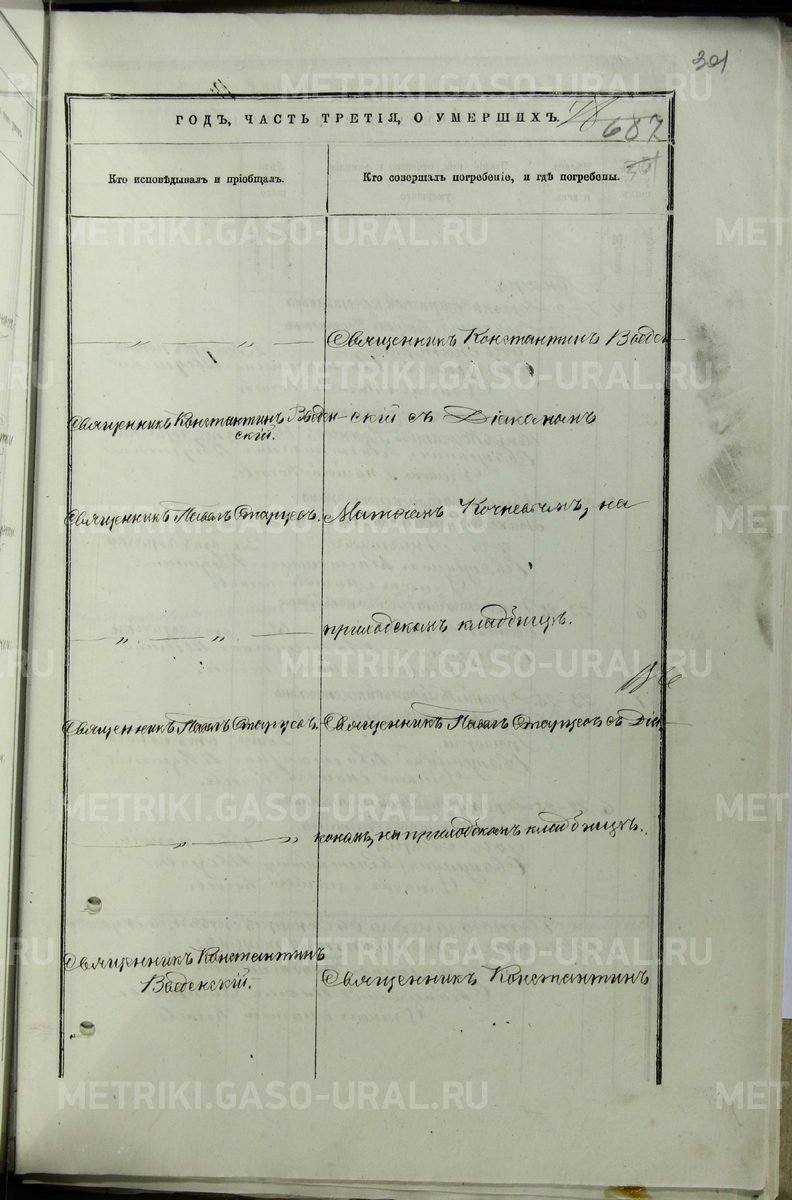 301
ГОДЪ, ЧАСТЬ ТРЕТІЯ, О УМЕРШИХЪ.
687
Кто исповѣдывалъ и пріобщалъ.
Кто совершалъ погребеніе, и гдѣ погребены.
— „ — „ —
Священникъ Константинъ Введен-
Священникъ Константинъ Введен-
скій.
скій съ Діакономъ
Священникъ Павелъ Старцевъ.
Кочневымъ, на
— „ — „ —
приходскомъ кладбищѣ.
Священникъ Павелъ Старцевъ.
Священникъ Павелъ Старцевъ съ Діа-
— „ — „
кономъ, на приходскомъ кладбищѣ.
Священникъ Константинъ
Введенскій.
Священникъ Константинъ
METRIKI.GASO-URAL.RU